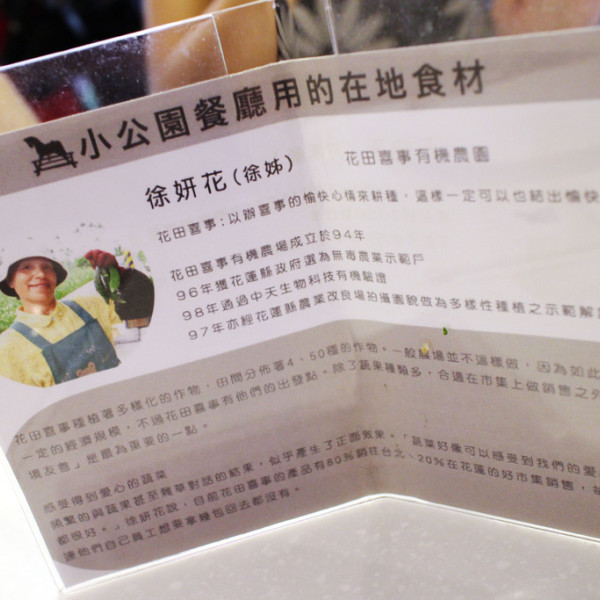 小公園餐廳用的在地食材
徐妍花(徐姊)
花田喜事有機農園
花田喜事:以辦喜事的愉快心情來耕種,這樣一定可以也結出愉快
花田喜事有機農場成立於94年
96年獲花蓮縣政府選為無毒農業示範戶
98年通過中天生物科技有機驗證
97年亦經花蓮縣農業改良場拍攝圖說做為多樣性種植之示範解
花田喜事種植著多樣化的作物,田間分佈著4、50種的作物。一般農場並不這樣做,因為如此
一定的經濟規模,不過花田喜事有他們的出發點。除了蔬果種類多,合適在市集上做銷售之外
境友善」是最為重要的一點。
感受得到愛心的蔬菜
頻繁的與蔬果甚至雜草對話的結果,似乎產生了正面效果。「蔬菜好像可以感受到我們的愛
都很好。」徐妍花說,目前花田喜事的產品有80%銷往台北、20%在花蓮的好市集銷售,
連他們自己員工想要拿幾包回去都沒有。